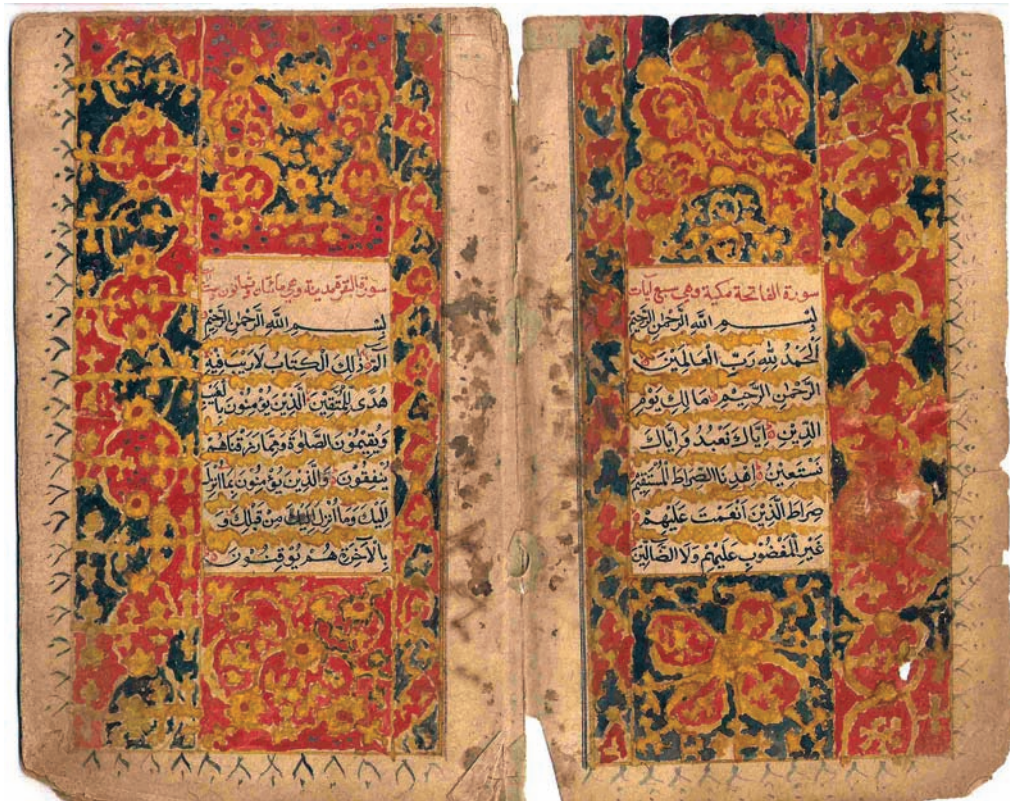 سورة الفاتحة مكية وهي سبع آيات
بِسْمِ اللَّهِ الرَّحْمٰنِ الرَّحِيْمِ
اَلْحَمْدُ لِلّٰهِ رَبِّ الْعَالَمِيْنَ
الرَّحْمٰنِ الرَّحِيْمِ مَالِكِ يَوْمِ
الدِّيْنِ اِيَّاكَ نَعْبُدُ وَاِيَّاكَ
نَسْتَعِيْنُ اِهْدِنَا الصِّرَاطَ الْمُسْتَقِيْمَ
صِرَاطَ الَّذِيْنَ اَنْعَمْتَ عَلَيْهِمْ
غَيْرِ الْمَغْضُوْبِ عَلَيْهِمْ وَلَا الضَّالِّيْنَ
سورة البقرة مدنية وهي مائتان وثمانون وست
بِسْمِ اللَّهِ الرَّحْمٰنِ الرَّحِيْمِ
الم ذٰلِكَ الْكِتَابُ لَا رَيْبَ فِيْهِ
هُدًى لِلْمُتَّقِيْنَ الَّذِيْنَ يُؤْمِنُوْنَ بِالْغَيْبِ
وَيُقِيْمُوْنَ الصَّلٰوةَ وَمِمَّا رَزَقْنَاهُمْ
يُنْفِقُوْنَ وَالَّذِيْنَ يُؤْمِنُوْنَ بِمَا اُنْزِلَ
اِلَيْكَ وَمَا اُنْزِلَ مِنْ قَبْلِكَ وَ
بِالْاٰخِرَةِ هُمْ يُوْقِنُوْنَ